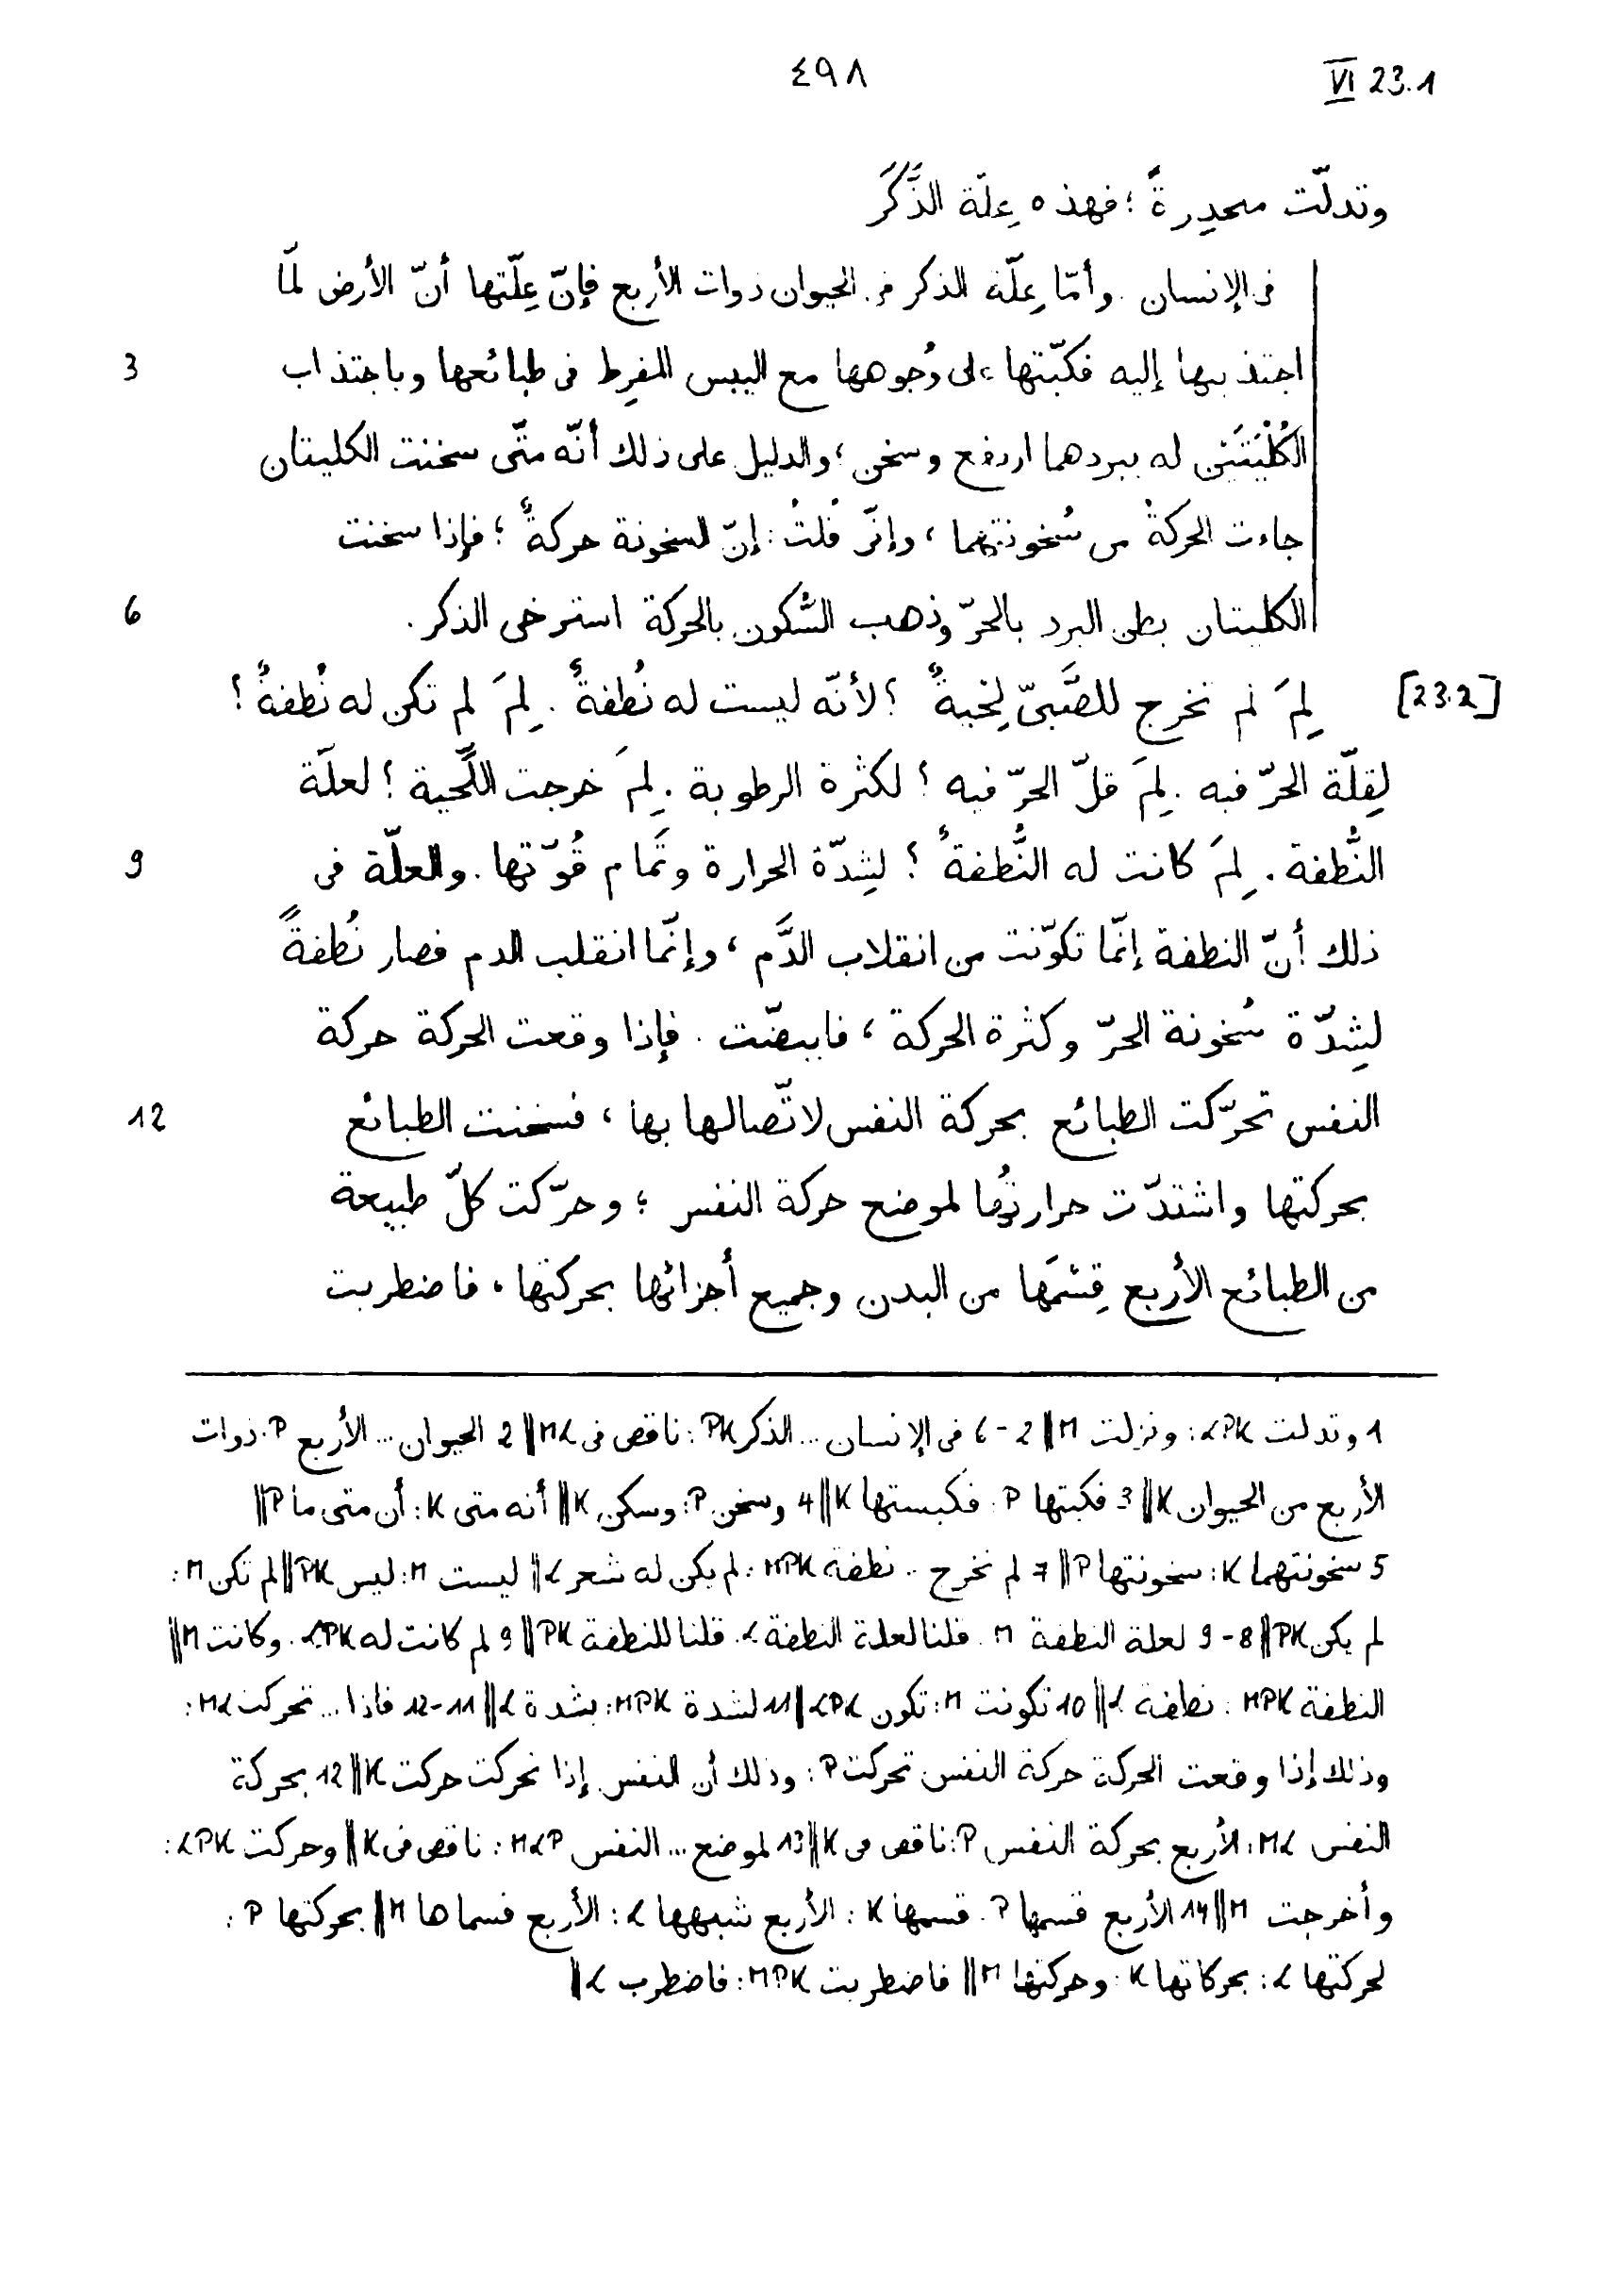 ٤٩٨
VI 23.1
وتدلّت منحدِرةً ؛ فهذه عِلّة الذَّكَر
فى الإنسان . وأمّا عِلّة الذكر فى الحيوان ذوات الأربع فإنّ عِلّتها أنّ الأرض لمّا
3 اجتذبتها إليه فكبّتها على وُجوهها مع اليبس المفرِط فى طبائعها وباجتذاب
الكُلْيَتَيْن له ببردهما ارتفع وسخن ؛ والدليل على ذلك أنّه متّى سخنت الكليتان
جاءت الحركةُ من سُخونتهما ، وإنّى قُلتُ : إنّ السخونة حركةٌ ؛ فإذا سخنت
6 الكليتان بطن البرد بالحرّ وذهب السُّكون بالحركة استرخى الذكر .
[23.2] لِمَ لم تخرج للصَّبىّ لِحْيةٌ ؟ لأنّه ليست له نُطفةٌ . لِمَ لم تكن له نُطفةٌ ؟
لِقِلّة الحرّ فيه . لِمَ قلّ الحرّ فيه ؟ لكثرة الرطوبة . لِمَ خرجت اللِّحية ؟ لعلّة
9 النُّطفة . لِمَ كانت له النُّطفةُ ؟ لشِدّة الحرارة وتَمام قُوّتها . والعلّة فى
ذلك أنّ النطفة إنّما تكوّنت من انقلاب الدَّم ، وإنّما انقلب الدم فصار نُطفةً
لشِدّة سُخونة الحرّ وكثرة الحركة ، فابيضّت . فإذا وقعت الحركة حركة
12 النفس تحرّكت الطبائع بحركة النفس لاتّصالها بها ، فسخنت الطبائع
بحركتها واشتدّت حرارتُها لموضع حركة النفس ؛ وحرّكت كلّ طبيعة
من الطبائع الأربع قِسْمَها من البدن وجميع أجزائها بحركتها ، فاضطربت
1 وتدلت LPK : ونزلت M || 2-6 فى الإنسان ... الذكر PK : ناقص فى ML || 2 الحيوان ... الأربع P . ذوات
الأربع من الحيوان K || 3 فكبتها P : فكبستها K || 4 وسخن P : وسكن K || أنه متى K : أن متى ما P ||
5 سخونتهما K : سخونتها P || 7 لم تخرج .. نطفة MPK : لم يكن له شعر L || ليست M : ليس PK || لم تكن M :
لم يكن PK || 8-9 لعلة النطفة M . قلنا لعلة النطفة L . قلنا للنطفة PK || 9 لم كانت له LPK . وكانت M ||
النطفة MPK : نطفة L || 10 تكونت M : تكون LPK || 11 لشدة MPK : بشدة L || 11-12 فاذا ... تحركت ML :
وذلك إذا وقعت الحركة حركة النفس تحركت P : وذلك أن النفس إذا تحركت حركت K || 12 بحركة
النفس ML : الأربع بحركة النفس P : ناقص فى K || 13 لموضع ... النفس MLP : ناقص فى K || وحركت LPK :
وأخرجت M || 14 الأربع قسمها P . قسمها K : الأربع شبهها L : الأربع قسماها M || بحركتها P :
لحركتها L : بحركاتها K : وحركتها M || فاضطربت MPK : فاضطرب L ||